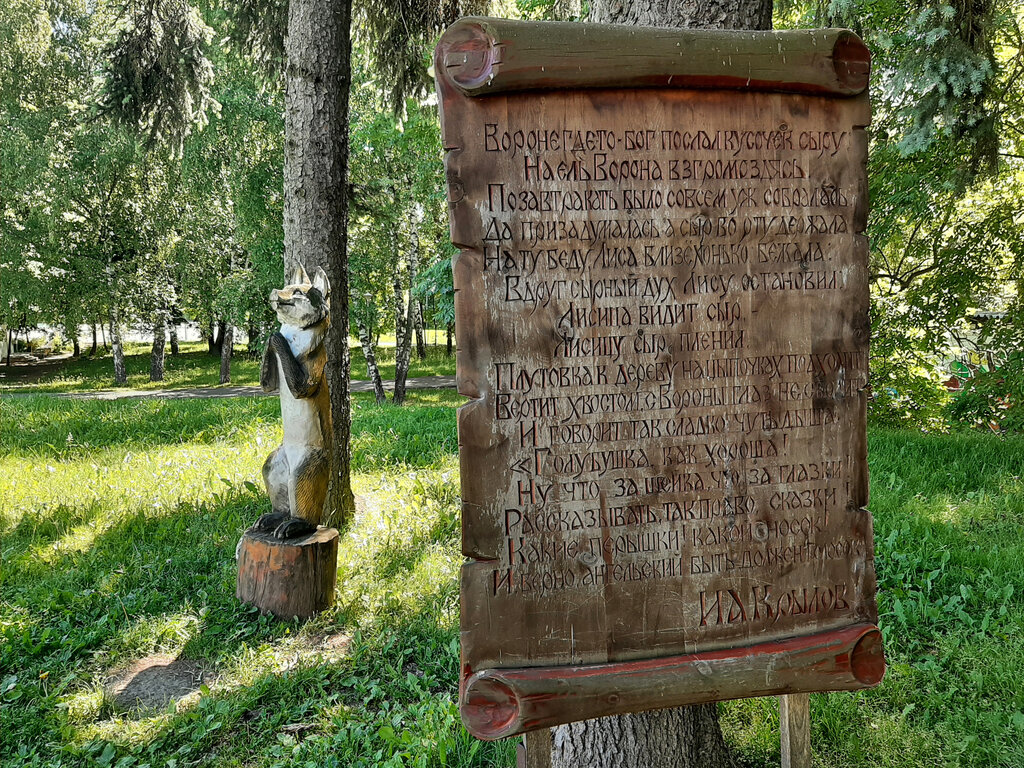 Вороне где-то бог послал кусочек сыру.
На ель Ворона взгромоздясь,
Позавтракать было совсем уж собралась,
Да призадумалась, а сыр во рту держала.
На ту беду, Лиса близёхонько бежала;
Вдруг сырный дух Лису остановил.
Лисица видит сыр, -
Лисицу сыр пленил.
Плутовка к дереву на цыпочках подходит
Вертит хвостом, с Вороны глаз не
И говорит так сладко, чуть дыша:
«Голубушка, как хороша!
Ну что за шейка, что за глазки!
Рассказывать, так, право, сказки!
Какие пёрышки! какой носок!
И верно, ангельский быть должен голосок
И А Крылов